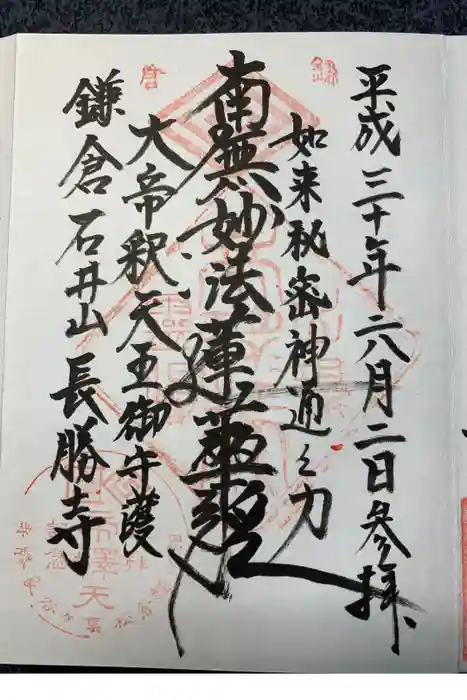 平成三十年六月二日参拝
如来秘密神通之力
南無妙法蓮華経
大帝釈天王御守護
鎌倉石井山長勝寺
帝釋天